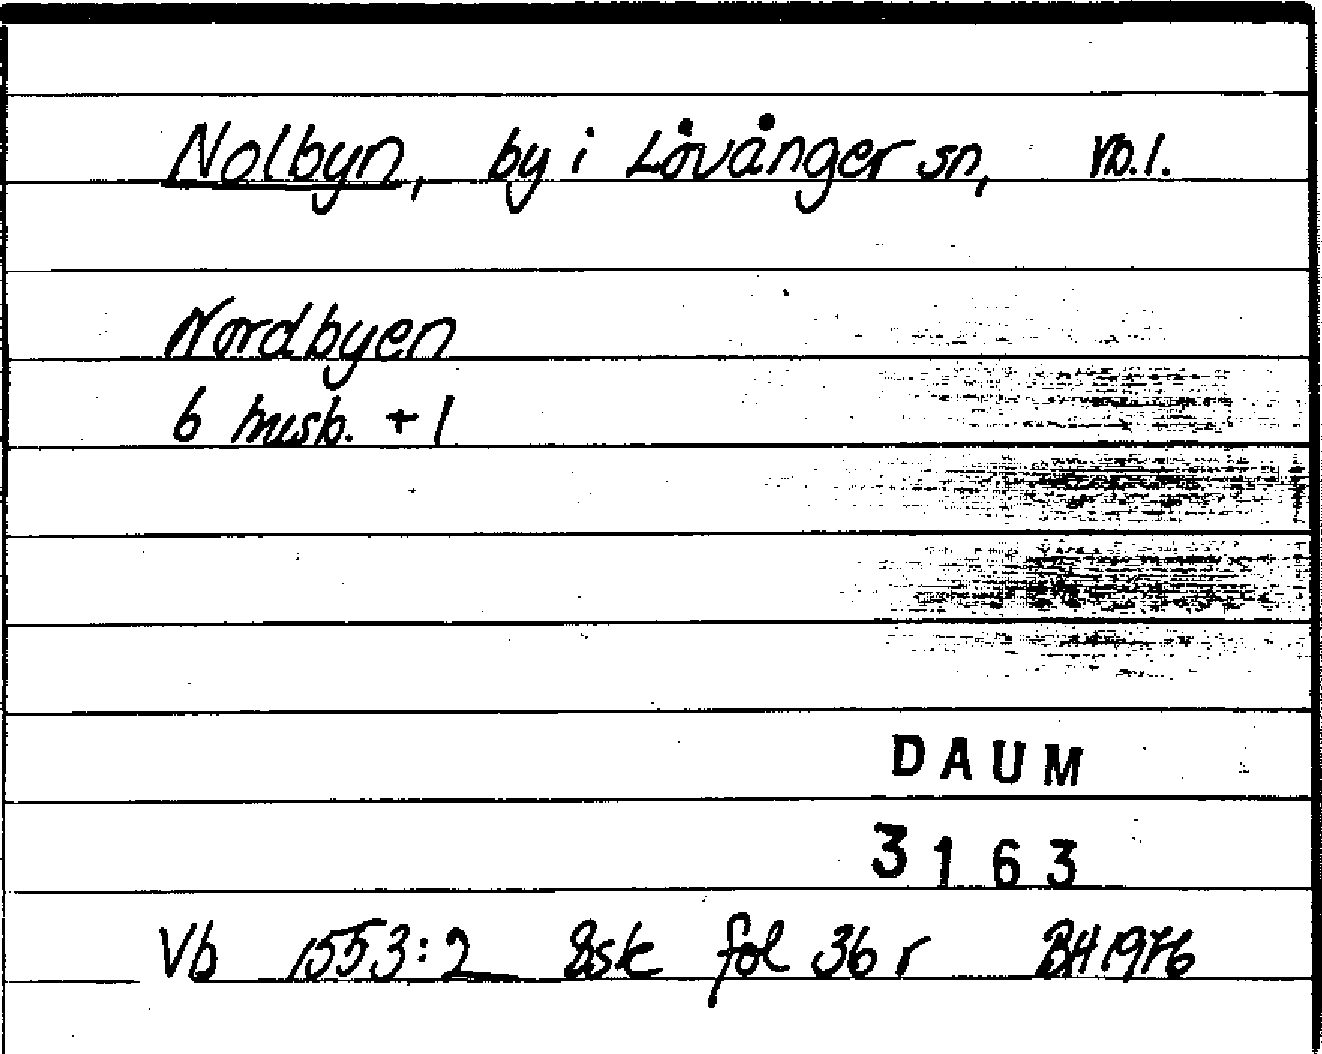 Nolbyn, by i Lövånger sn, Vb.l.
Nordbyen
6 husb. + 1
DAUM
3163
Vb 1553:2 8sk fol 36 r BH 1976